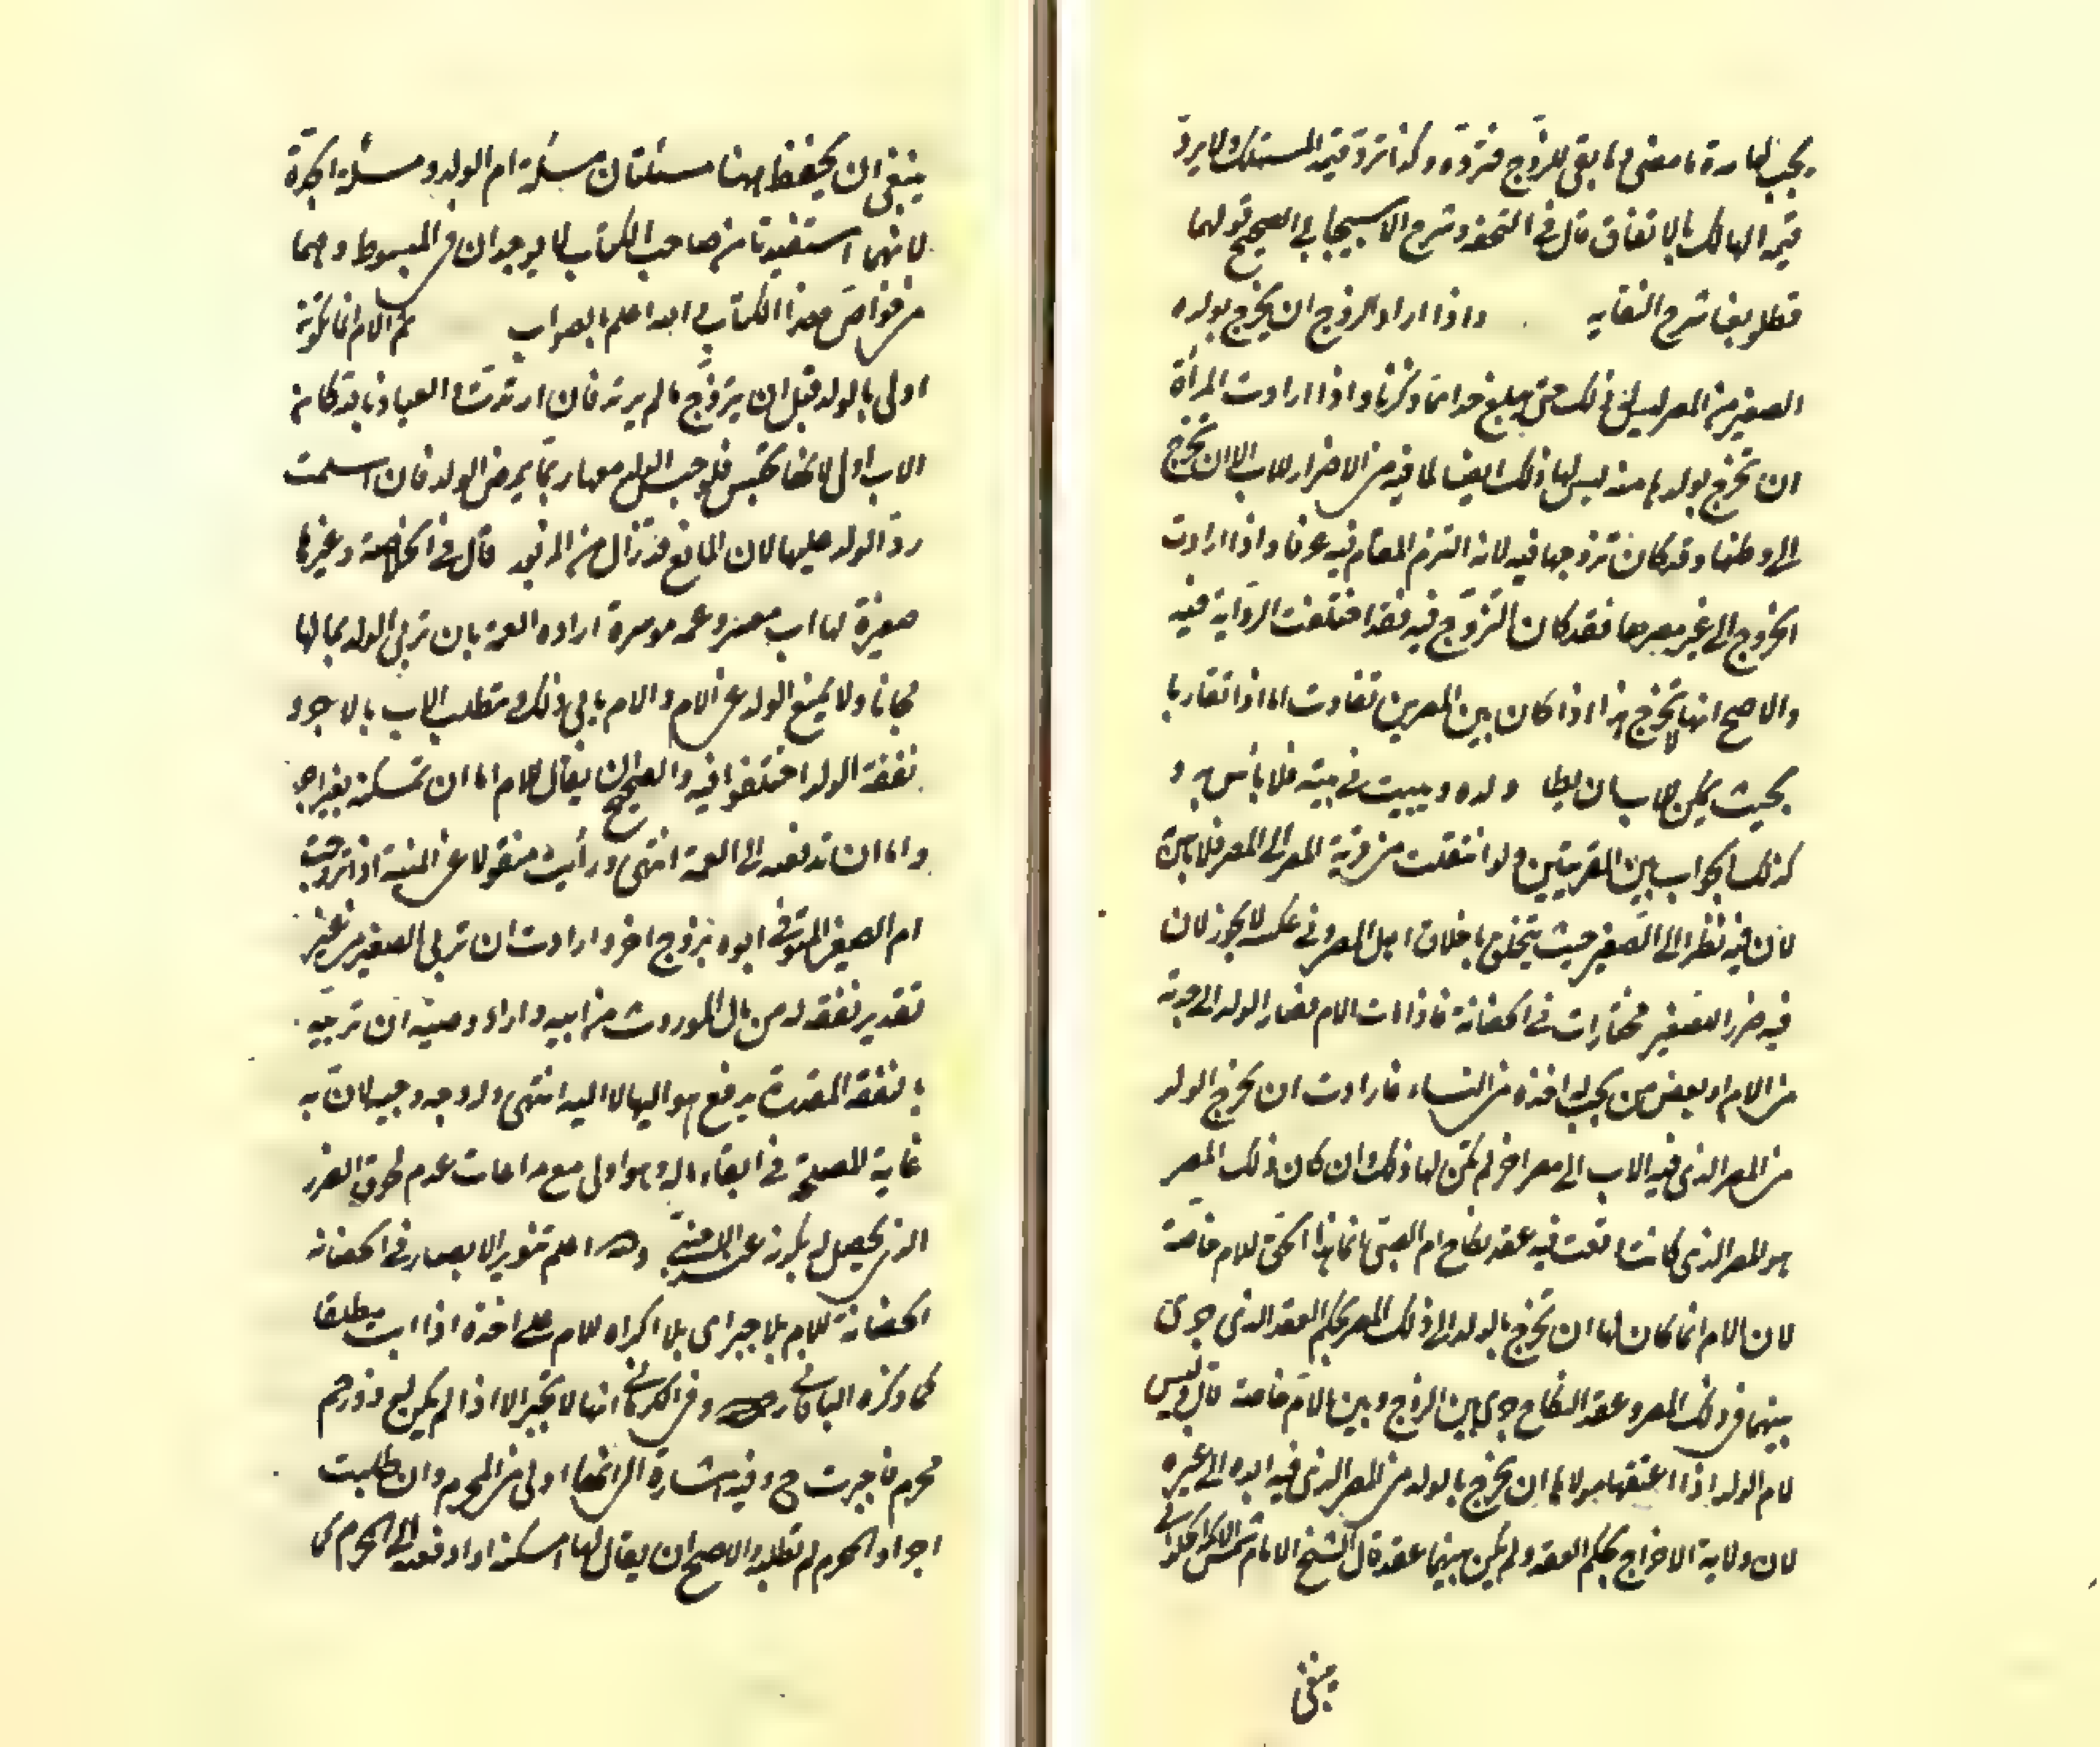 يجب لها مدة ما مضى وما بقى للزوج فترده وكذا ترد قيمة المستهلك ولا يرد
قيمة الهالك بالاتفاق قال في التحفة وشرح الاسبيجابي الصحيح قولهما
قطلوبغا شرح النقايه واذا اراد الزوج ان يخرج بولده
الصغير من المصر ليس له ذلك حتى يبلغ حد ما ذكرنا واذا ارادت المرأة
ان تخرج بولدها منه ليس لها ذلك ايضا لما فيه من الاضرار بالاب الا ان تخرج
الى وطنها وقد كان تزوجها فيه لانه التزم المقام فيه عرفا واذا ارادت
الخروج الى غير مصرها فقد كان التزوج فيه فقد اختلفت الرواية فيه
والاصح انها لا تخرج هذا اذا كان بين المصرين تفاوت اما اذا تقاربا
بحيث يمكن للاب ان يطالع ولده ويبيت في بيته فلا باس به و
كذلك الجواب بين القريتين ولو انتقلت من قرية المصر الى المصر فلا باس به
لان فيه نظرا الى الصغير حيث يتخلق باخلاق اهل المصر وفي عكسه لا يجوز لان
فيه ضرر الصغير مختارات في الحضانة فاذا مات الام فصار الولد الى جدته
من الام او بعض من يجب له اخذه من النساء فارادت ان يخرج الولد
من المصر الذي فيه الاب الى مصر اخر لم يكن لها ذلك وان كان ذلك المصر
هو المصر الذي كانت وقعت فيه عقد نكاح ام الصبي فانما هذا الحق للام خاصة
لان الام انما كان لها ان تخرج بالولد الى ذلك المصر بحكم العقد الذي جرى
بينهما في ذلك المصر وعقد النكاح جرى بين الزوج وبين الام خاصة قال وليس
لام الولد اذا اعتقها مولاها ان تخرج بالولد من المصر الذي فيه ابوه الى غيره
لان ولاية الاخراج بحكم العقد ولم يكن بينهما عقد قال الشيخ الامام شمس الائمة الحلواني
ينبغي
ينبغي ان يحفظ ههنا مسئلتان مسئلة ام الولد ومسئلة الجدة
لانهما استفيدتا من صاحب الكتاب لا يوجدان في المبسوط وهما
من خواص هذا الكتاب والله اعلم بالصواب ثم الام انما تكون
اولى بالولد قبل ان يتزوج ما لم يرتد فان ارتدت والعياذ بالله كان
الاب اولى لانها تحبس فلو حبس الولد معها ربما يمرض الولد فان اسلمت
رد الولد عليها لان المانع قد زال من قال في الخلاصة وغيرها
صغيرة لها اب معسر وعمه موسرة ارادت العمة بان تربي الولد بمالها
مجانا ولا يمنع الولد عن الام والام يأبى ذلك وتطلب الاب بالاجر و
نفقة الولد اختلفوا فيه والصحيح ان يقال للام اما ان تمسكه بغير اجر
واما ان تدفعه الى العمة انتهى ورأيت منقولا عن المنية اذ تزوجت
ام الصغير المتوفى ابوه بزوج اخر وارادت ان تربي الصغير من غير
تقدير نفقة له من مال الموروث من ابيه واراد وصيه ان تربيه
بالنفقة المقدرة يدفع هو اليها لا اليه انتهى وله وجه وجيه لان به
غاية المصلحة في ابقاء ماله وهو اولى مع مراعات عدم لحوق الضرر
الذي يحصل له بكونه عند الاجنبي والله اعلم تنوير الابصار في الحضانه
الحضانة للام بلا جبر اى بلا اكراه للام على اخذه اذا ابت مطلقا
كما ذكره الباقاني وفي الكرماني انها لا تجبر الا اذا لم يكن له ذو رحم
محرم فاجبرت ح وفيه اشارة الى انها اولى من المحرم وان طلبت
اجرا والمحرم لم تطلبه والاصح ان يقال لها امسكه او ادفعه الى المحرم كما